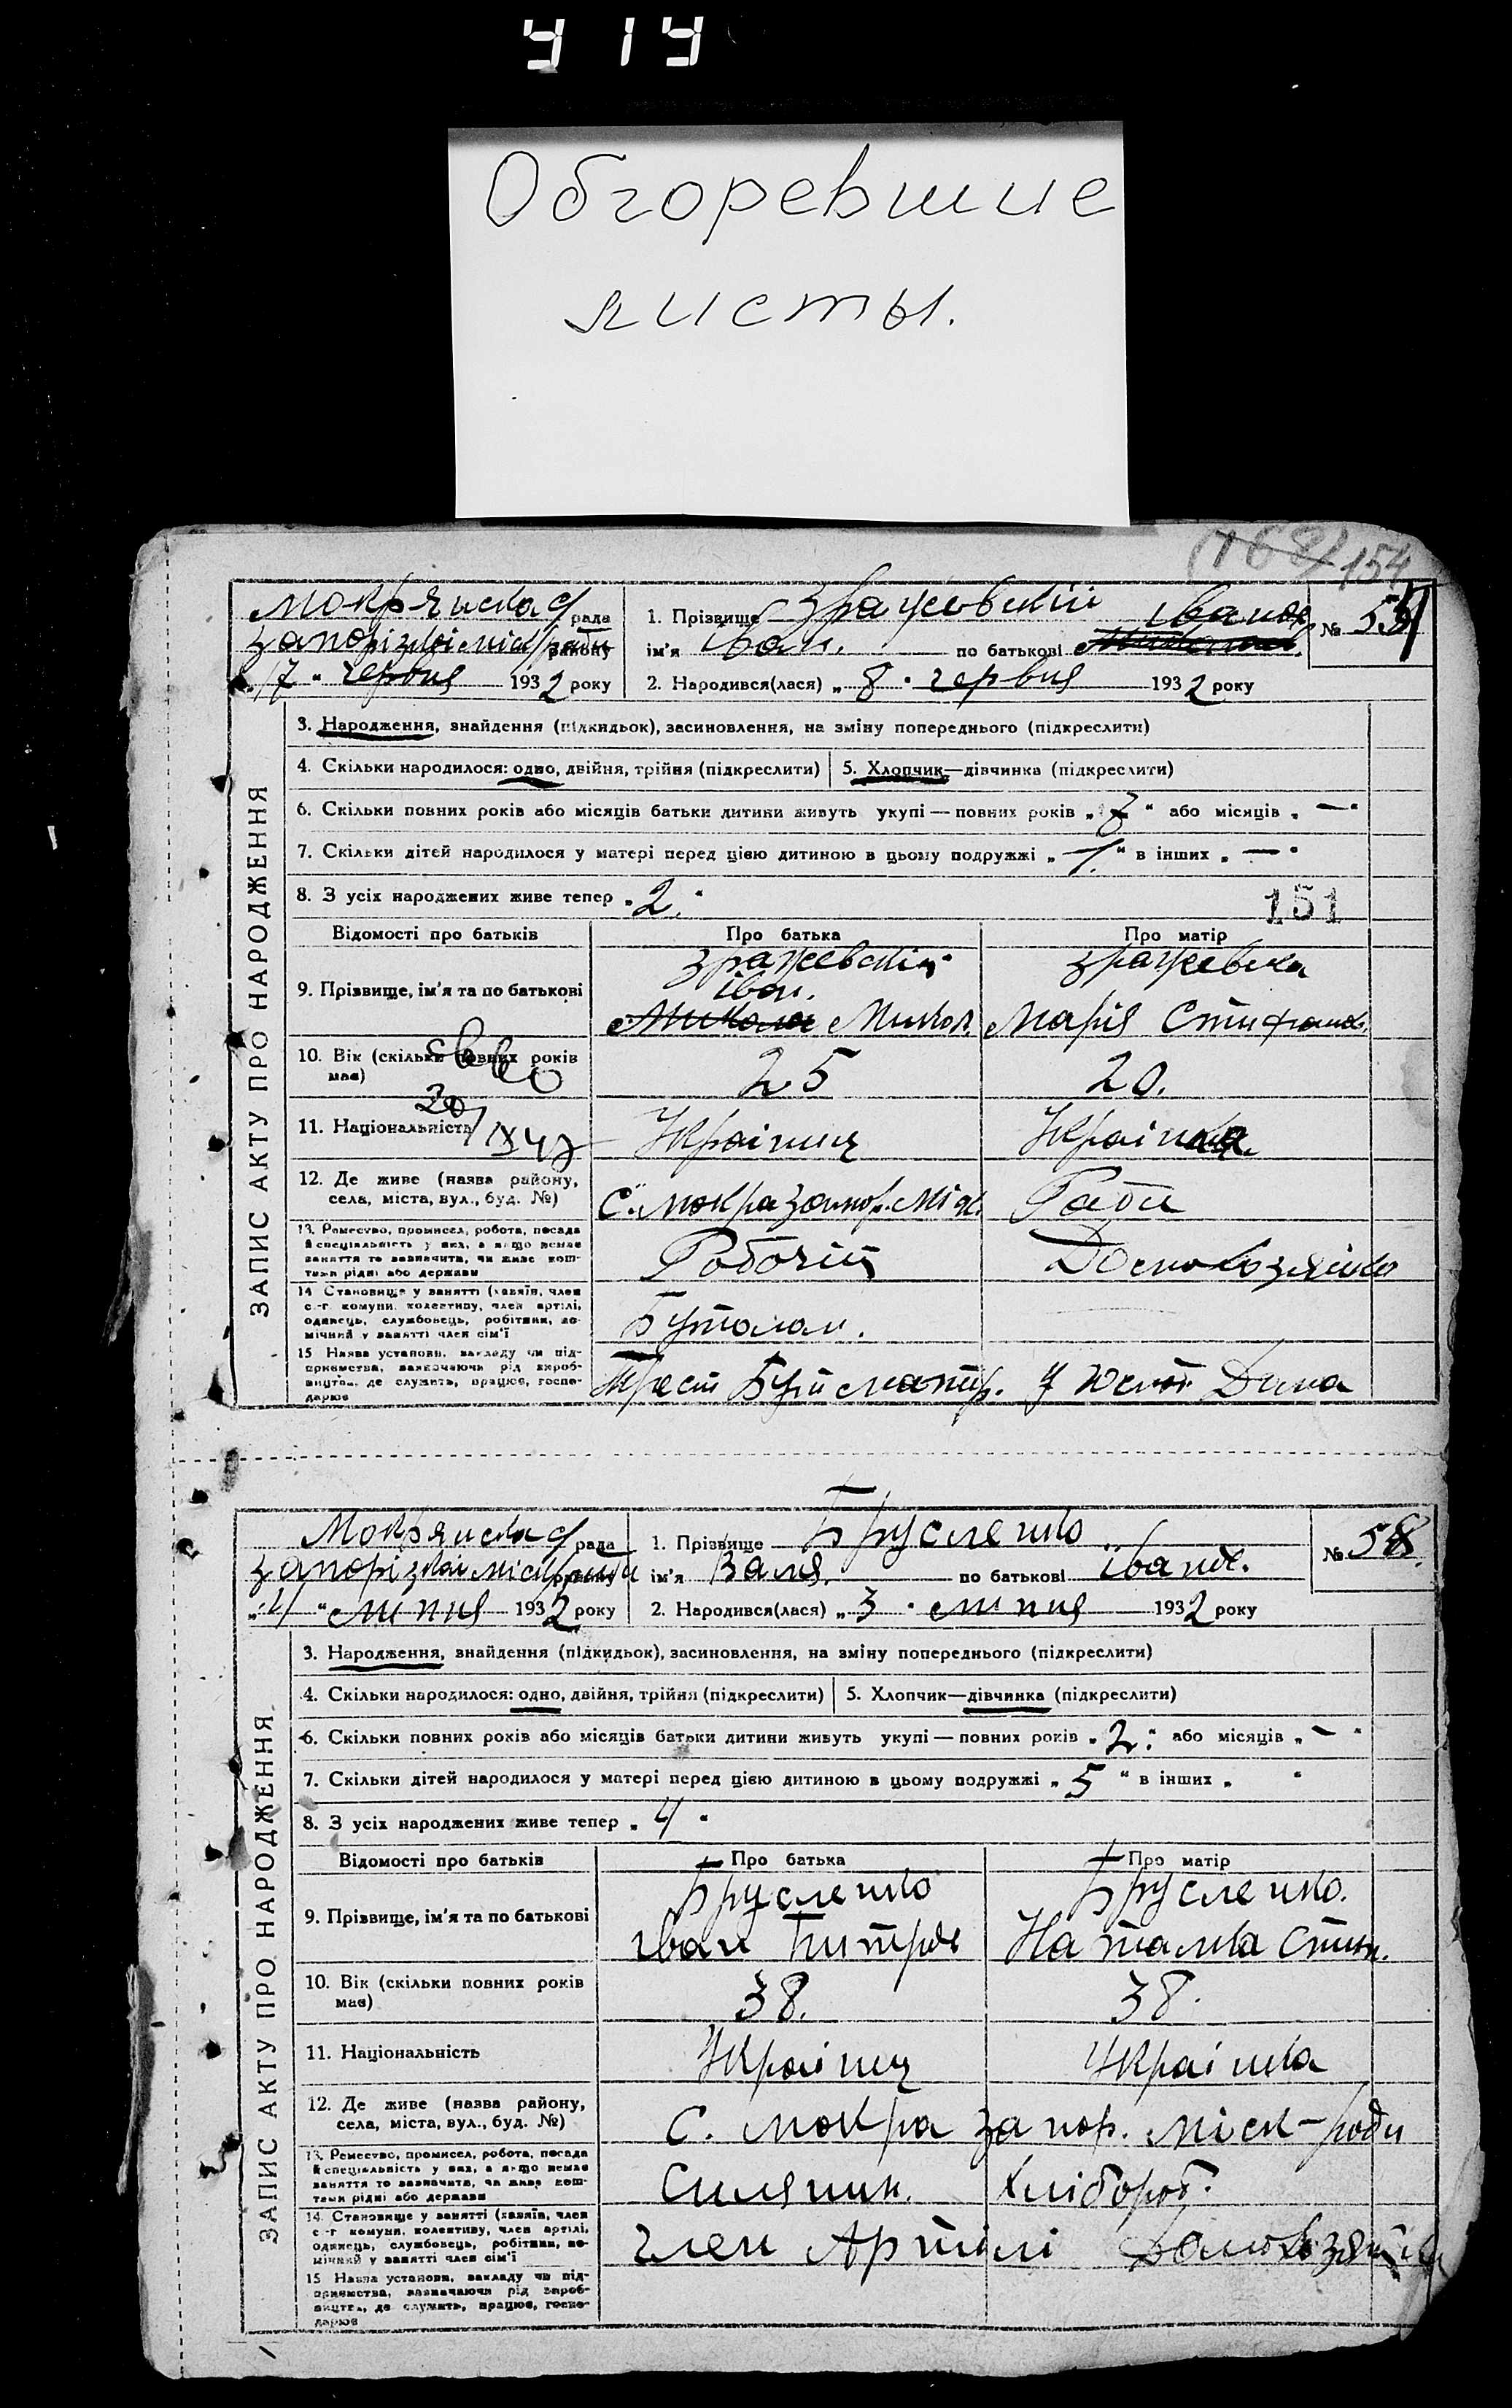 Обгоревшие
листы.
154
Мокрянська рада
Запорізької міськради району
"17" червня 1932 року
1. Прізвище Зражевський
ім'я Іван. по батькові Іванов
2. Народився(лася) „8" червня 1932 року
№ 57
3. Народження, знайдення (підкидьок), засиновлення, на зміну попереднього (підкреслити)
4. Скільки народилося: одно, двійня, трійня (підкреслити)
5. Хлопчик—дівчинка (підкреслити)
6. Скільки повних років або місяців батьки дитини живуть укупі — повних років „ " або місяців „—"
7. Скільки дітей народилося у матері перед цією дитиною в цьому подружжі „1." в інших „—"
8. З усіх народжених живе тепер „2."
151
ЗАПИС АКТУ ПРО НАРОДЖЕННЯ
Відомості про батьків
Про батька
Про матір
9. Прізвище, ім'я та по батькові
Зражевський
Іван.
Микола Микол.
Зражевська
Марія Стифанов.
10. Вік (скільки повних років має)
25
20.
11. Національність
Українец
Українка.
12. Де живе (назва району,
села, міста, вул., буд. №)
с. Мокра Запор. Міськ. Ради
13. Ремество, промисел, робота, посада
й спеціальність у них, а якщо немає
заняття то зазначити, чи живе кош-
тами рідні або держави
Робочій
Домохозяйка
14 Становище у занятті (хазяїн, член
с.-г комуни, колективу, член артілі,
одинець, службовець, робітник, по-
мічний у занятті член сім'ї
Бутолом.
15 Назва установи, закладу чи під-
приємства, зазначаючи рід вироб-
ництва, де служить, працює, госпо-
дарює
Трест Бутматер. У Юст. Дома
Мокрянська рада
Запорізької міськради району
„4" липня 1932 року
1. Прізвище Брусленко
ім'я Валя. по батькові Іванов.
2. Народився(лася) „3" липня 1932 року
№ 58.
3. Народження, знайдення (підкидьок), засиновлення, на зміну попереднього (підкреслити)
4. Скільки народилося: одно, двійня, трійня (підкреслити)
5. Хлопчик—дівчинка (підкреслити)
6. Скільки повних років або місяців батьки дитини живуть укупі — повних років „2." або місяців „—"
7. Скільки дітей народилося у матері перед цією дитиною в цьому подружжі „5" в інших „ "
8. З усіх народжених живе тепер „4"
ЗАПИС АКТУ ПРО НАРОДЖЕННЯ
Відомості про батьків
Про батька
Про матір
9. Прізвище, ім'я та по батькові
Брусленко
Іван Питров
Брусленко.
Наталка Стип.
10. Вік (скільки повних років має)
38.
38.
11. Національність
Українец
Українка
12. Де живе (назва району,
села, міста, вул., буд. №)
С. Мокра Запор. Міськ-ради
13. Ремество, промисел, робота, посада
й спеціальність у них, а якщо немає
заняття то зазначити, чи живе кош-
тами рідні або держави
Силянин. Хлібороб.
14. Становище у занятті (хазяїн, член
с.-г комуни, колективу, член артілі,
одинець, службовець, робітник, по-
мічний у занятті член сім'ї
член Артілі Домохозяйка
15 Назва установи, закладу чи під-
приємства, зазначаючи рід вироб-
ництва, де служить, працює, госпо-
дарює